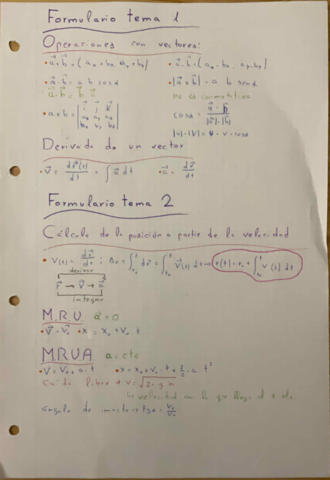 Formulario tema 1
Operaciones con vectores:
• a⃗+b⃗ = (aₓ+bₓ, a_y+b_y) • a⃗-b⃗ = (aₓ-bₓ, a_y-b_y)
• a⃗·b⃗ = a b cosα • |a⃗×b⃗| = a b senα
a⃗·b⃗ = b⃗·a⃗ no es conmutativa
• a×b = | i⃗ j⃗ k⃗ | cosα = a⃗·b⃗ / |a⃗|·|b⃗|
Derivada de un vector
• v⃗ = dr⃗(t)/dt = ∫ a⃗ dt • a⃗ = dv⃗/dt
Formulario tema 2
Cálculo de la posición a partir de la velocidad
• v(t) = dr⃗/dt ; Δr = ∫ dr⃗ = ∫ v⃗(t) dt ⇒ r(t) = r₀ + ∫ v(t) dt
derivar
r⃗ → v⃗ → a⃗
integrar
M.R.U a⃗=0
• v⃗ = v⃗₀ • x = x₀ + v₀ · t
MRUA a = cte
• v = v₀ + a·t • x = x₀ + v₀ · t + ½ · a · t²
Caída libre → v = √2·g·h
velocidad con la que llega al
ángulo de impacto → tgα =